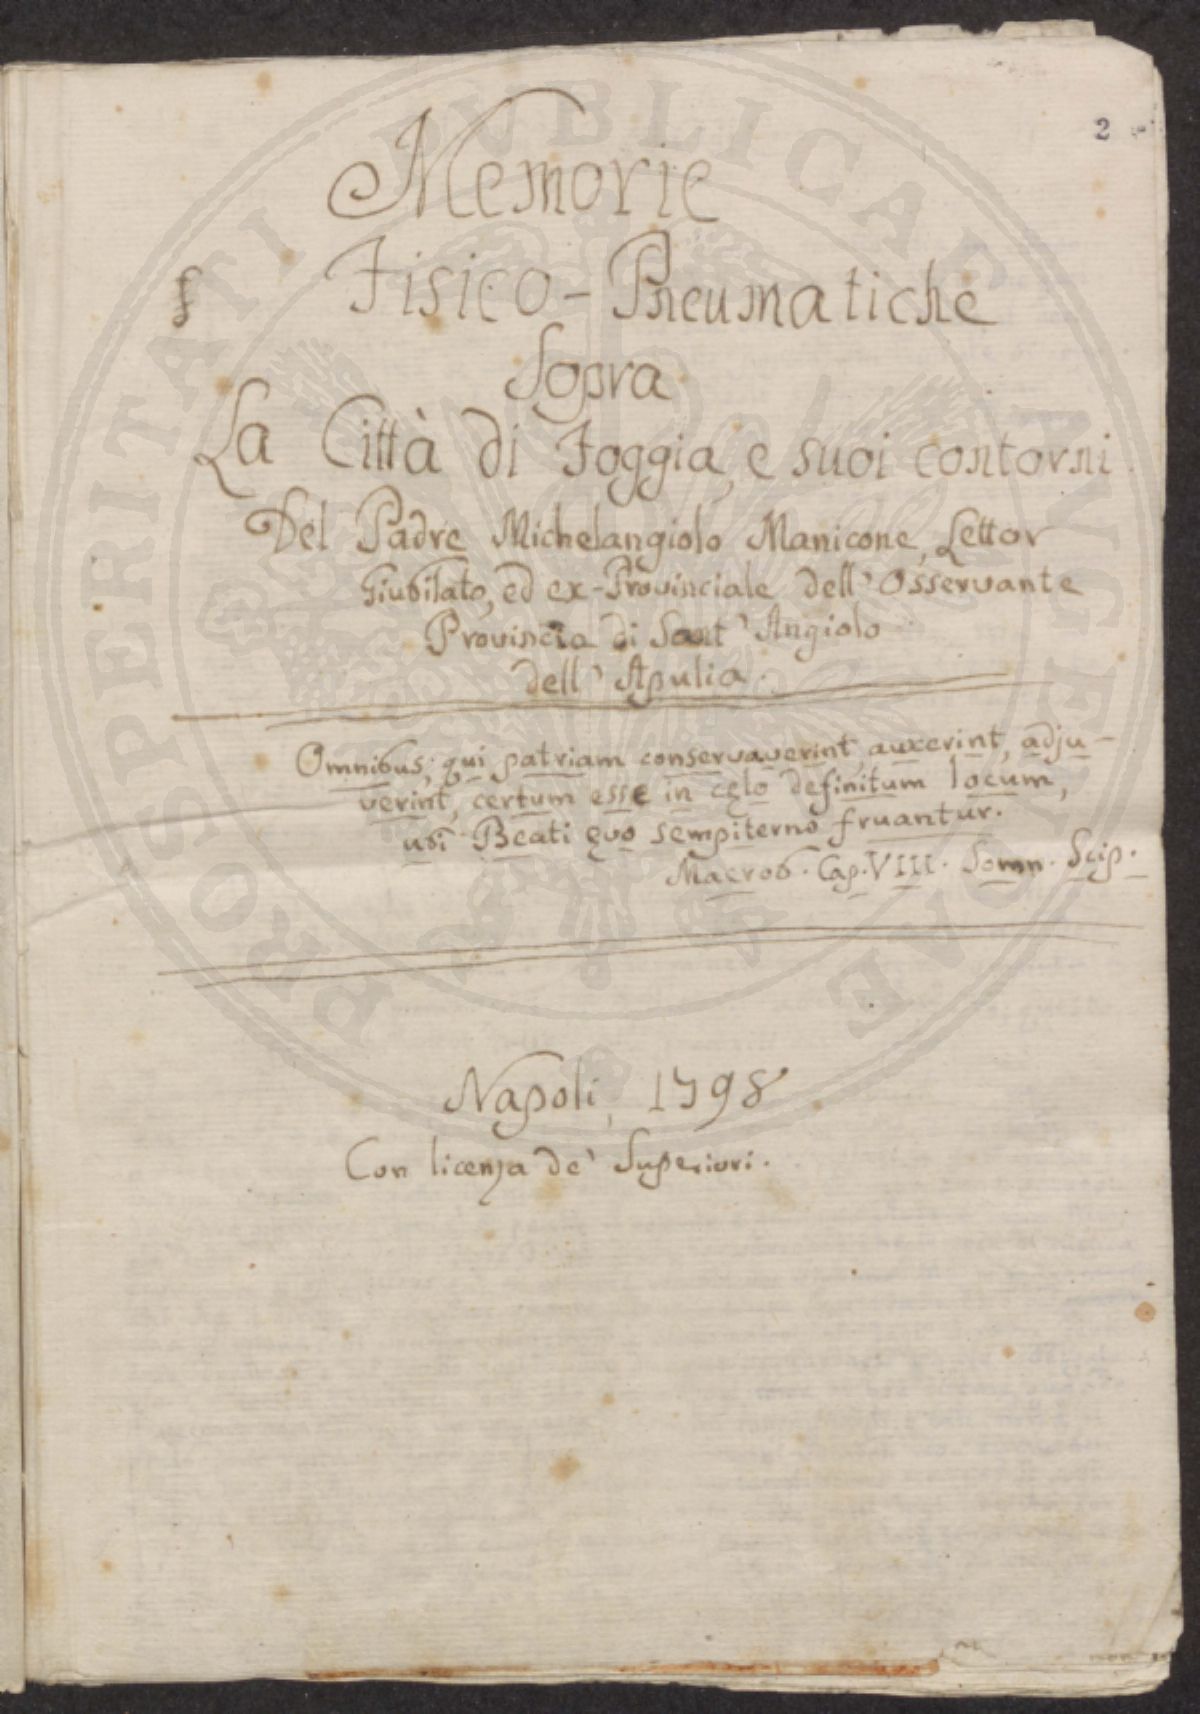 2
Memorie
f Fisico-Pneumatiche
Sopra
La Città di Foggia, e suoi contorni
Del Padre Michelangiolo Manicone, Lettor
Giubilato, ed ex-Provinciale dell'Osservante
Provincia di Sant'Angiolo
dell'Apulia.
Omnibus, qui patriam conservaverint, auxerint, adju-
verint, certum esse in cęlo definitum locum,
ubi Beati ęvo sempiterno fruantur.
Macrob. Cap. VIII. Somn. Scip.
Napoli, 1798
Con licenza de' Superiori.
PROSPERITATI PVBLICAE AVGENDAE